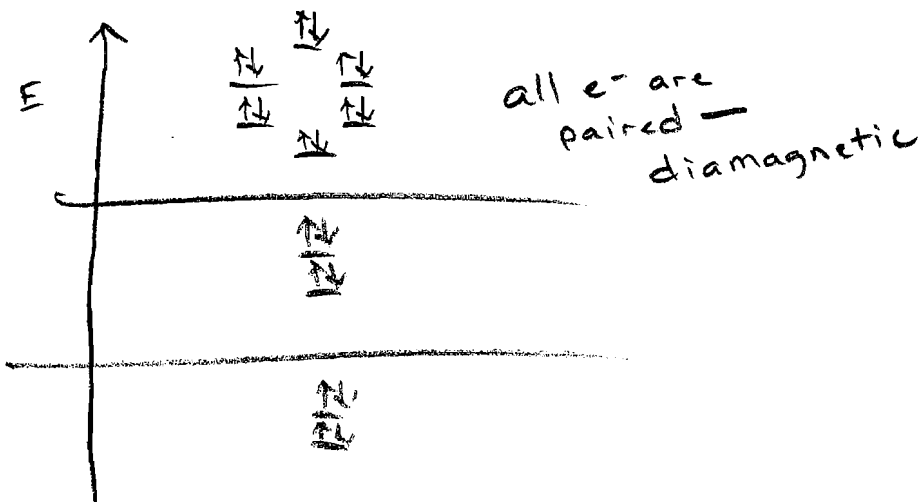 E
all e- are
paired —
diamagnetic